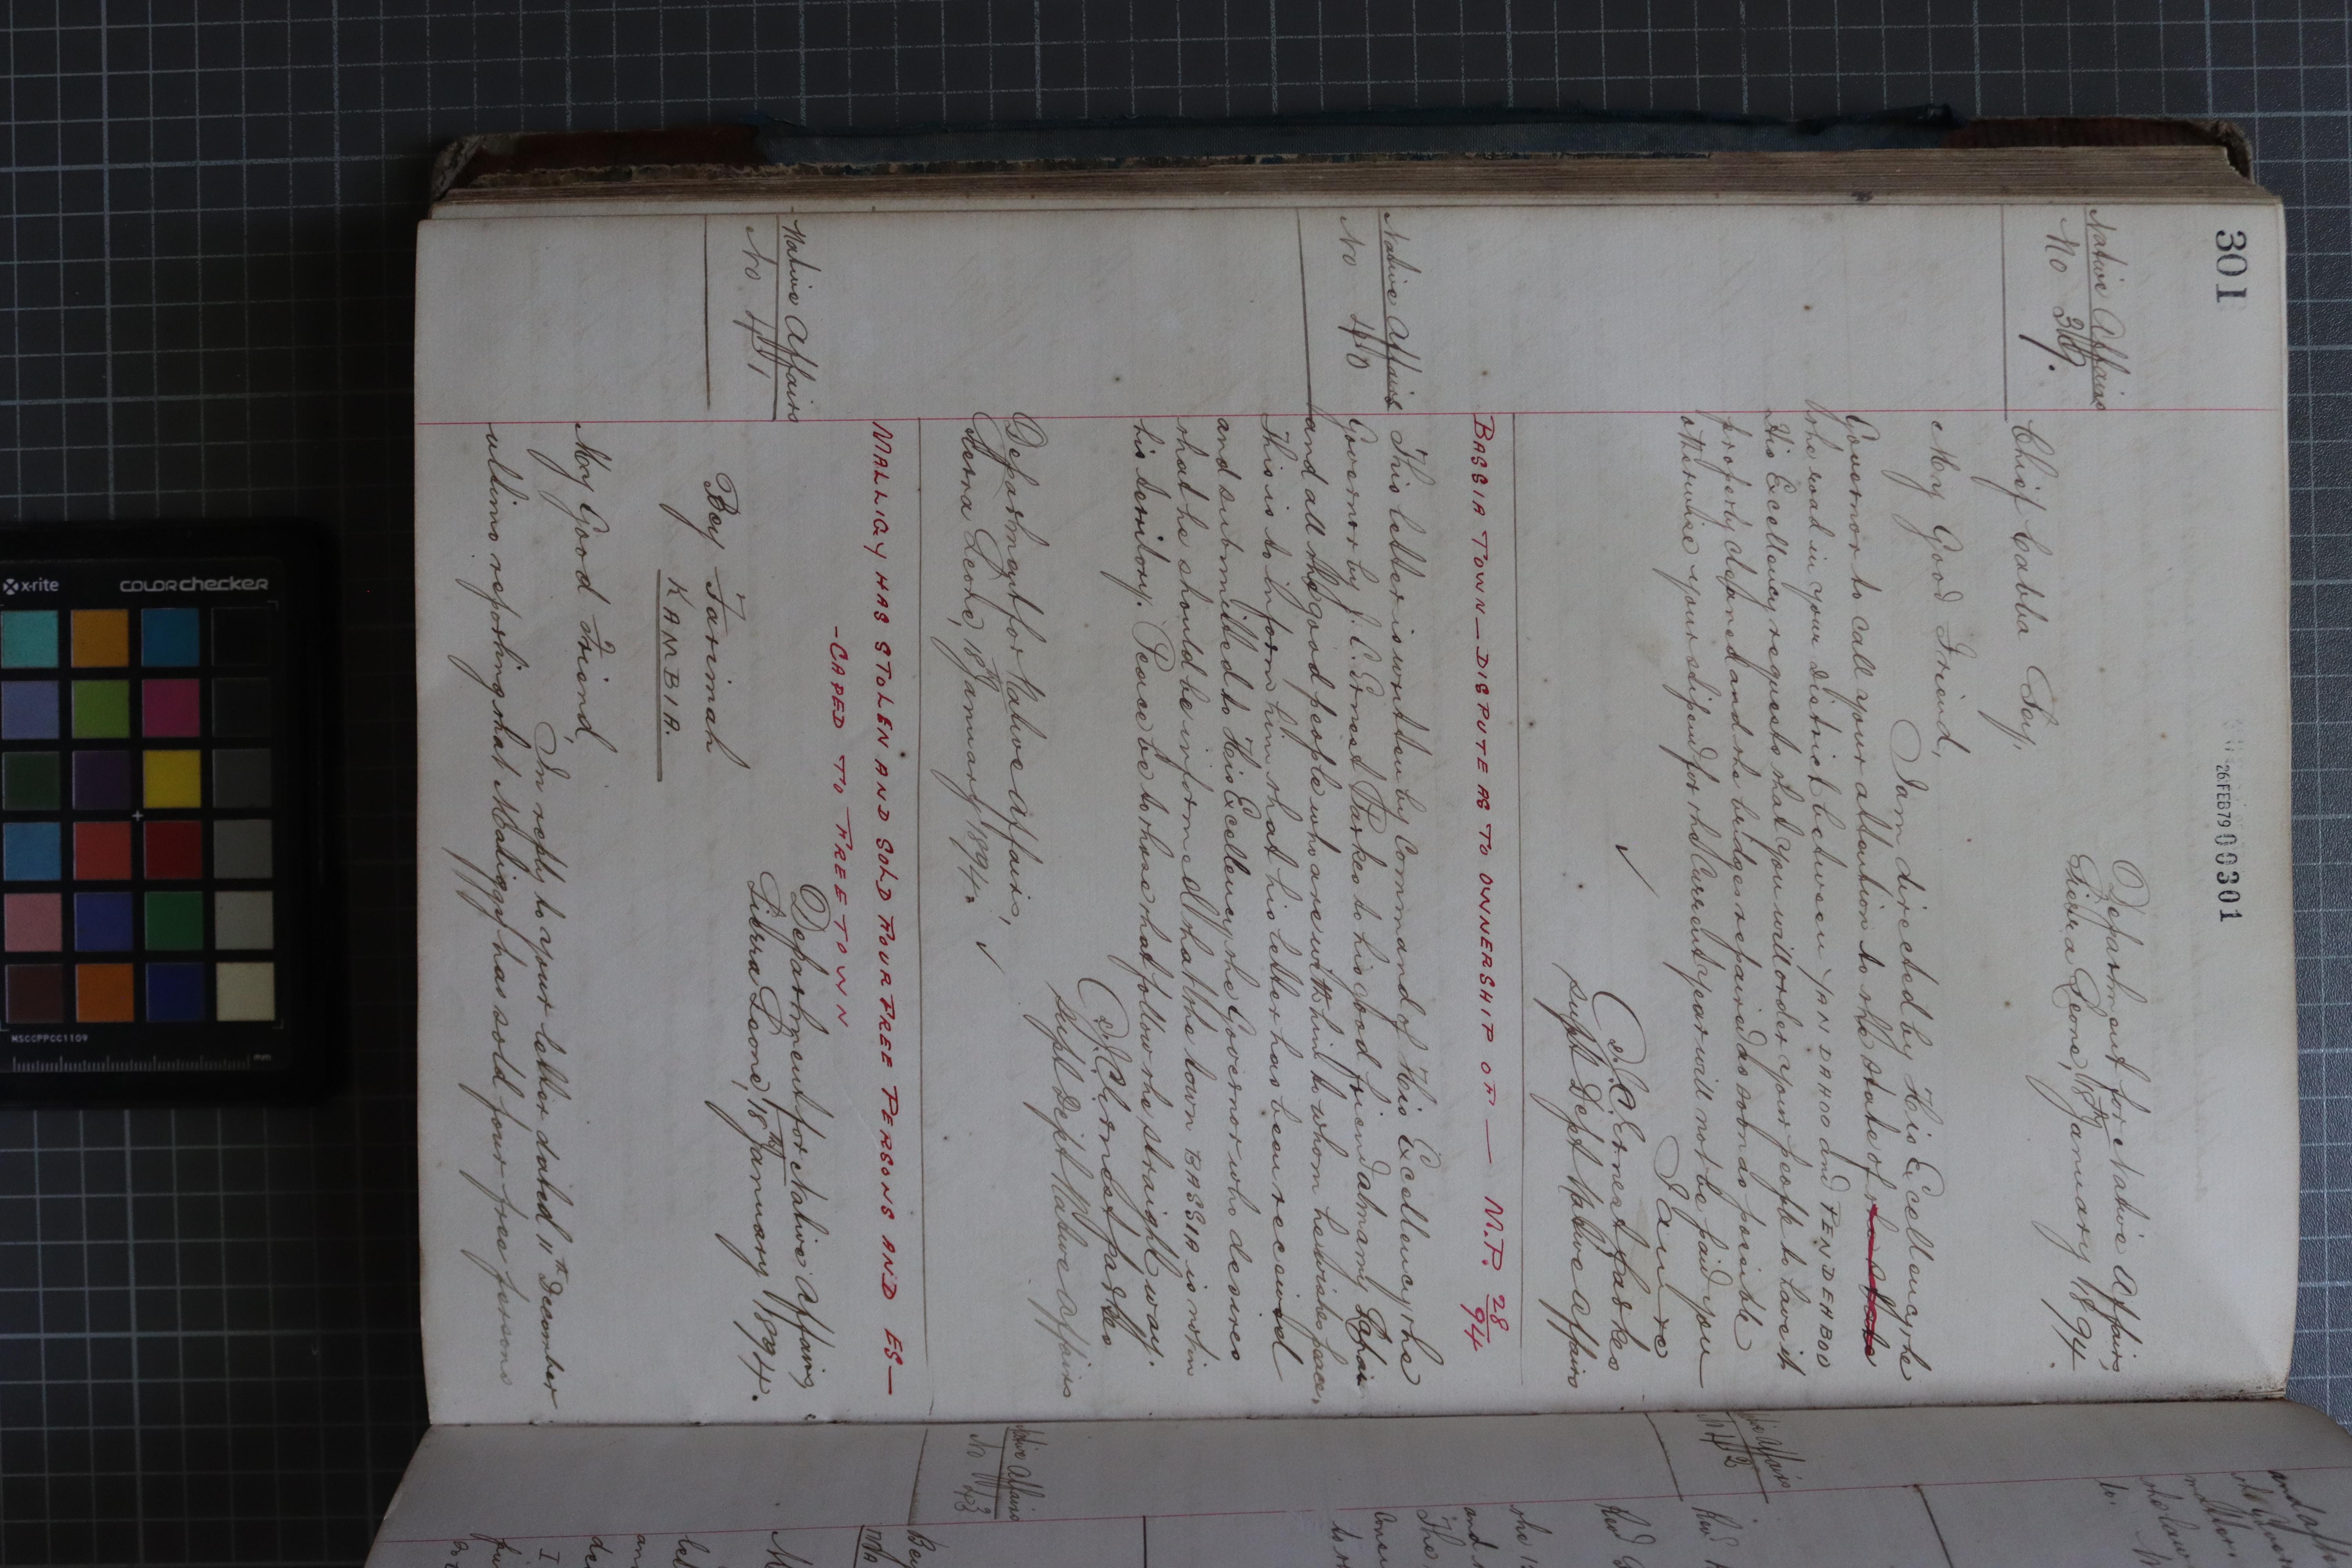 301
26 FEB 79 000301
Native Affairs
No 39.
Department for Native Affairs,
Sierra Leone, 18th January 1894.
Chief Cabba Say,
My Good Friend,
I am directed by His Excellency the
Governor to call your attention to the state of the state
the road in your District between YANDAHOO and PENDEHBOO
His Excellency requests that you will order your people to have it
properly cleaned and the bridges repaired as soon as possible
otherwise your stipend for the Current year will not be paid you
I am &c
J. C. Ernest Parkes
Supt Dept Native Affairs
✓
BASSIA TOWN — DISPUTE AS TO OWNERSHIP OF — M.P. 28/94
Native Affairs
No 40
This letter is written by Command of His Excellency the
Governor by J. C. Ernest Parkes to his good friend Almamy
and all the good people who are with him to whom he wishes peace,
This is to inform him that his letter has been received
and submitted to His Excellency the Governor who desires
that he should be informed that the town BASSIA is not in
his territory. Peace be to those that follow the straight way.
J. C. Ernest Parkes
Supt Dept Native Affairs
Department for Native Affairs,
Sierra Leone, 18th January 1894. ✓
MALLIGY HAS STOLEN AND SOLD FOUR FREE PERSONS AND ES—
-CAPED TO FREETOWN
Native Affairs
No 41,
Department for Native Affairs,
Sierra Leone, 18th January 1894.
Bey Farimah
KAMBIA.
My Good Friend,
In reply to your letter dated 11th December
ultimo reporting that Maliggy has sold four free persons
Native Affairs
No 42
Native Affairs
No 43